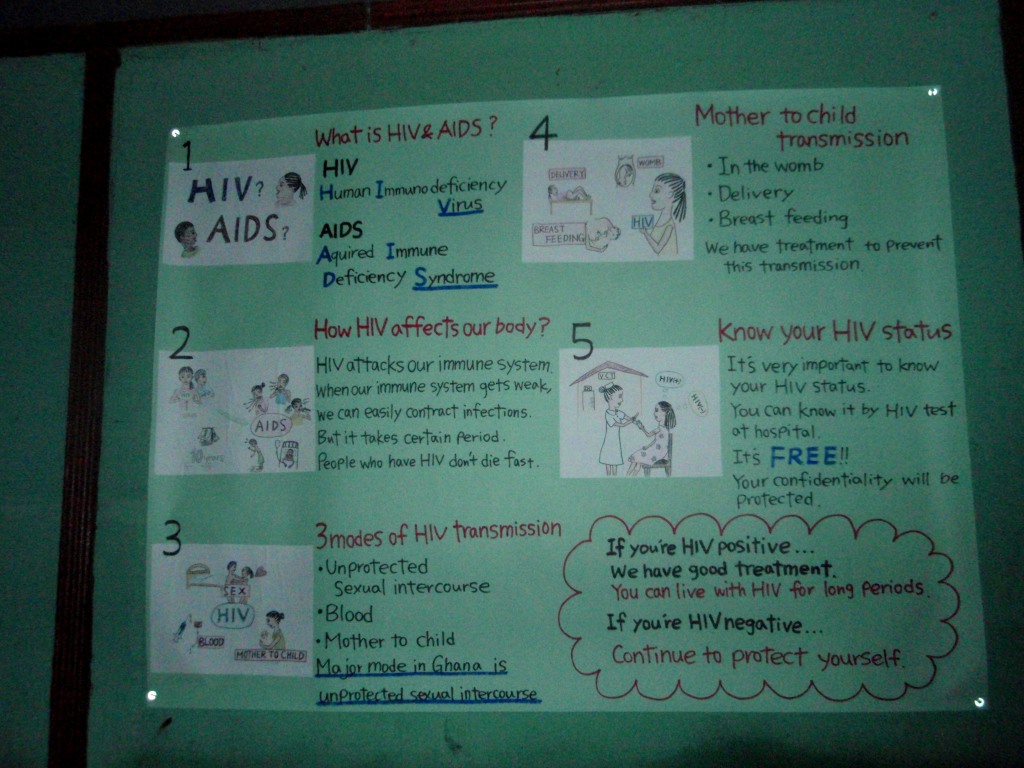 1
HIV?
AIDS?
What is HIV & AIDS?
HIV
Human Immunodeficiency
Virus
AIDS
Aquired Immune
Deficiency Syndrome
2
AIDS
How HIV affects our body?
HIV attacks our immune system.
When our immune system gets weak,
we can easily contract infections.
But it takes certain period.
People who have HIV don't die fast.
3
SEX
HIV
BLOOD
MOTHER TO CHILD
3 modes of HIV transmission
• Unprotected
Sexual intercourse
• Blood
• Mother to child
Major mode in Ghana is
unprotected sexual intercourse.
4
DELIVERY
WOMB
HIV
BREAST
FEEDING
Mother to child
transmission
• In the womb
• Delivery
• Breast feeding
We have treatment to prevent
this transmission.
5
Know your HIV status
It's very important to know
your HIV status.
You can know it by HIV test
at hospital.
It's FREE!!
Your confidentiality will be
protected.
If you're HIV positive...
We have good treatment.
You can live with HIV for long periods.
If you're HIV negative...
Continue to protect yourself.